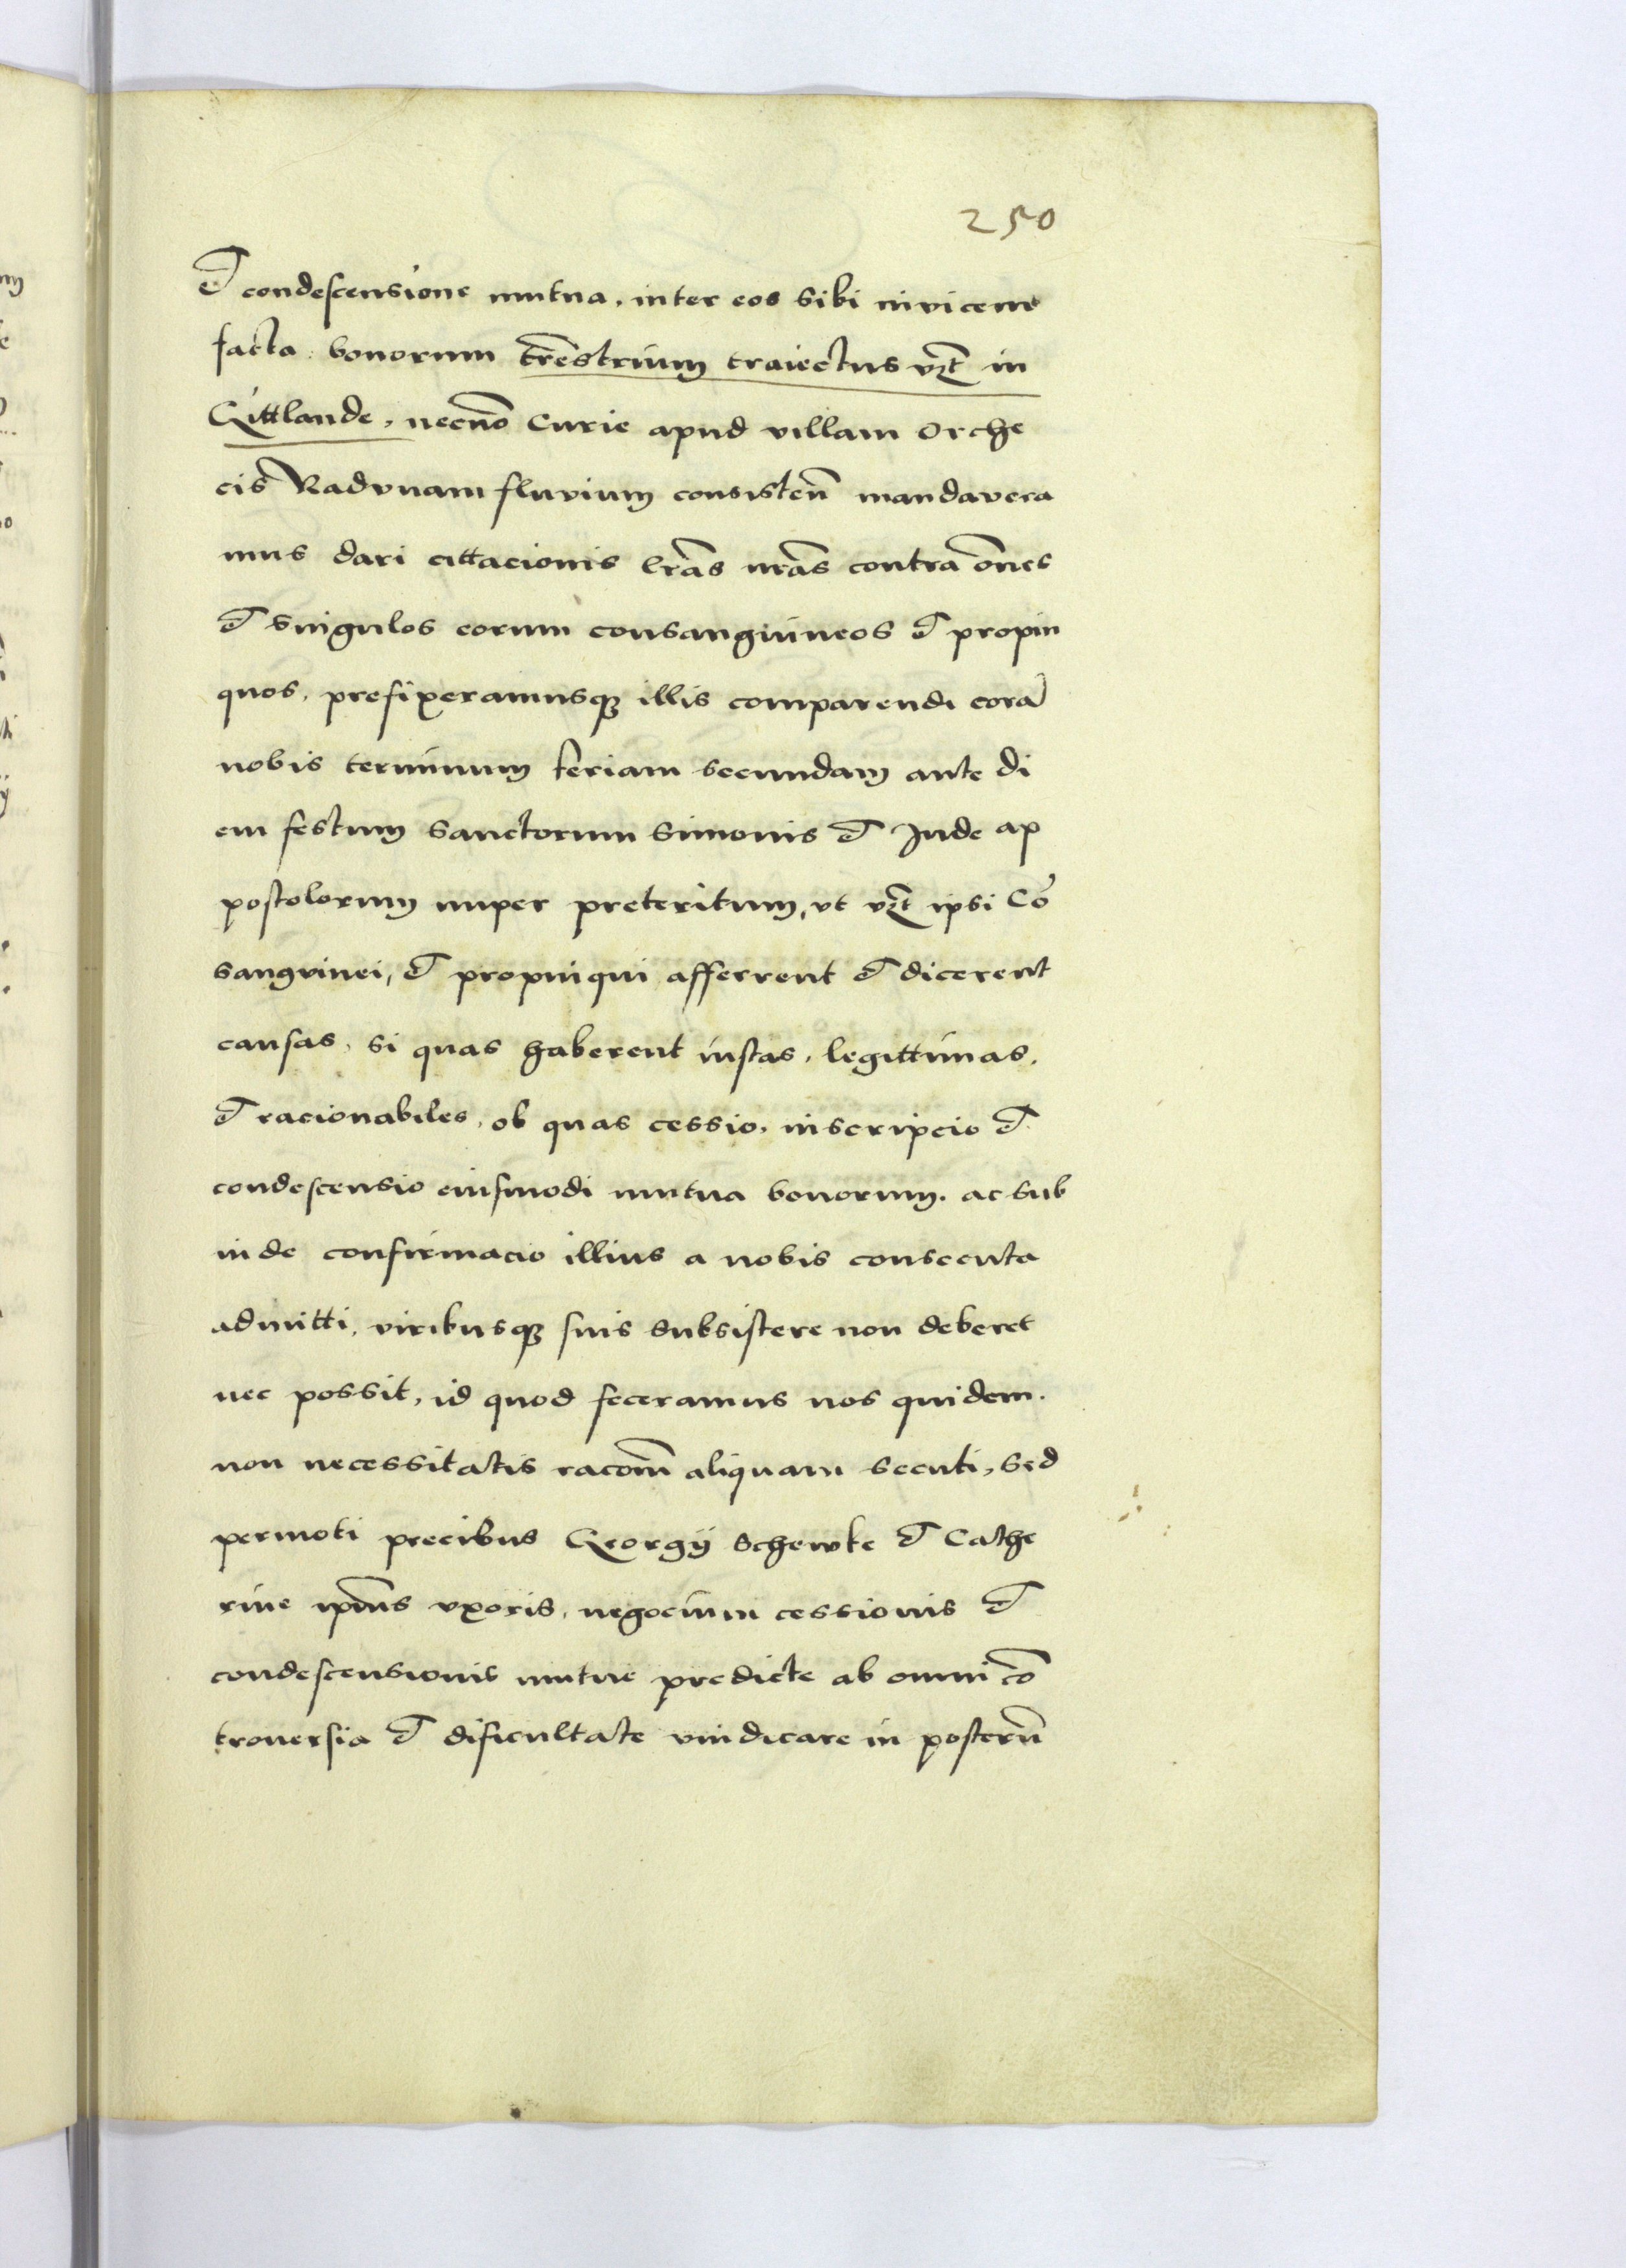 250
et condescensione mutua, inter eos sibi invicem
facta, bonorum tr̃estrium traiectus vzt̃ in
Gittlande, necno͂ Curie apud villam Orche
cis Radvnam fluvium consisten͂ mandavera
mus dari cittacionis lr̃as nr̃as contra om̃es
et singulos eorum consanguineos et propin
quos, prefixeramusqz illis comparendi cora͂
nobis terminum feriam secundam ante di
em festum Sanctorum Simonis et Jude ap
postolorum nuper preteritum, vt vzt̃ ipsi Co͂
sangvinei, et propinqui afferrent et dicerent
causas, si quas haberent iustas, legittimas,
et racionabiles, ob quas cessio, inscripcio et
condescensio eiusmodi mutua bonorum, ac sub
inde confirmacio illius a nobis consecuta
admitti, viribusqz suis subsistere non deberet
nec possit, id quod feceramus nos quidem.
non necessitatis racom͂ aliquam secuti, sed
permoti precibus Georgij Schewke et Cathe
rine ip͂ius vxoris, negocium cessionis et
condescensionis mutue predicte ab omni co͂
trouersia et dificultate vindicare in posteru͂